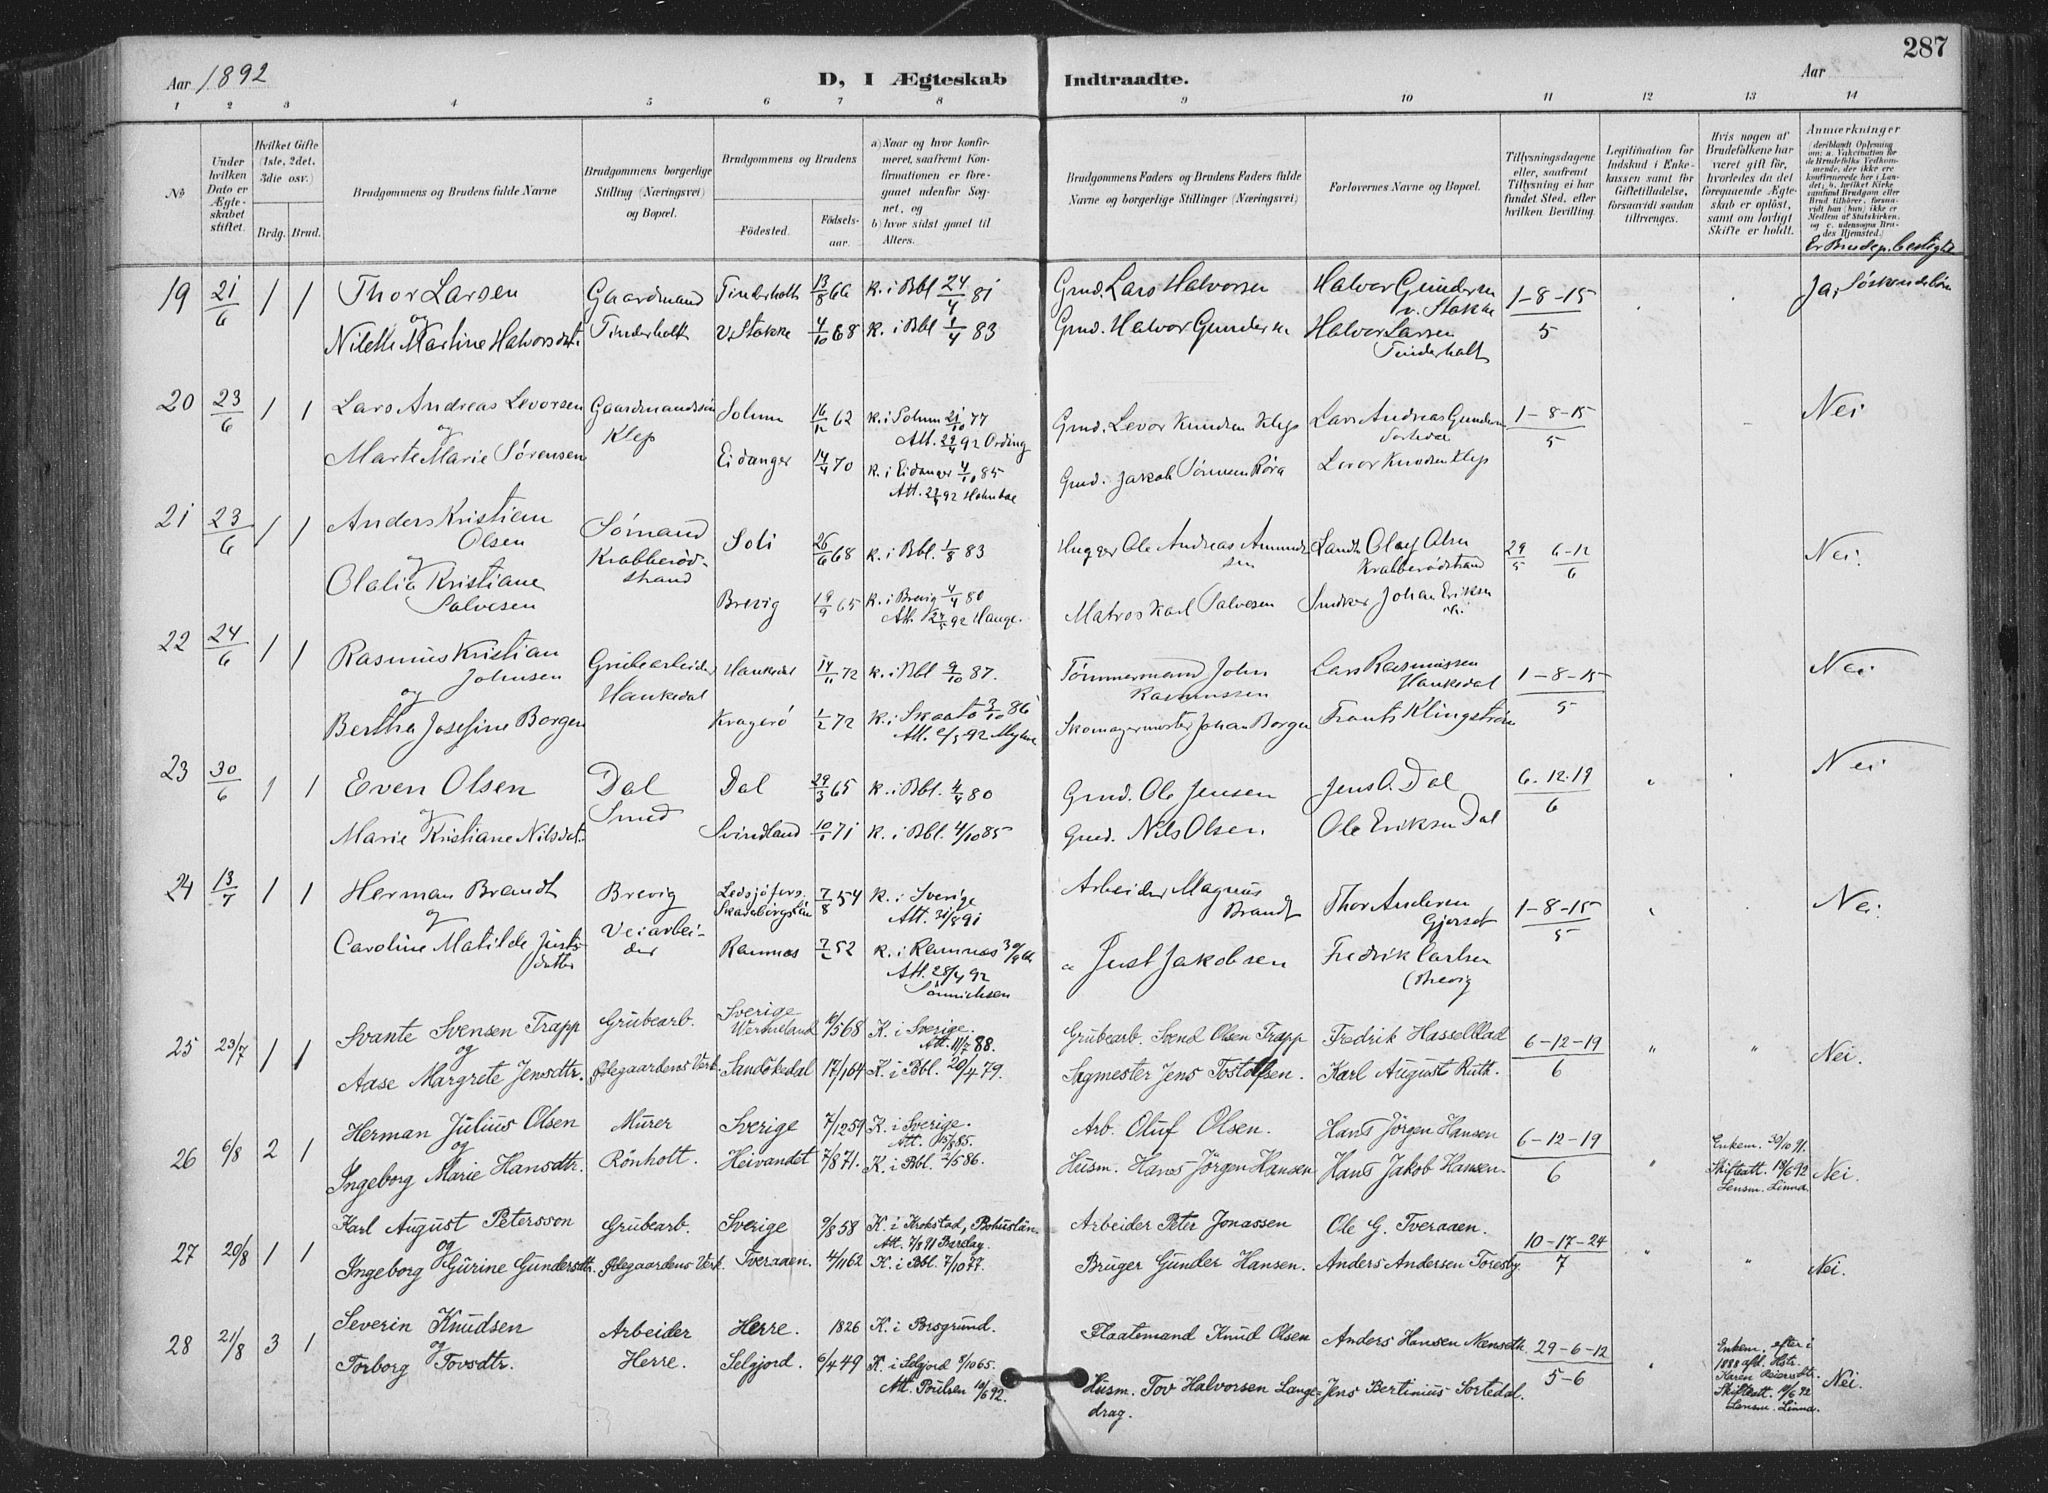 287
Aar 1892
D, I Ægteskab Indtraadte.
Aar
1 2 3 4 5 6 7 8 9 10 11 12 13 14
No
Under hvilken Dato er Ægteskabet stiftet.
Hvilket Gifte (1ste, 2det, 3die osv.)
Brdg. Brud.
Brudgommens og Brudens fulde Navne
Brudgommens borgerlige Stilling (Næringsvei) og Bopæl.
Brudgommens og Brudens
Födested. Födselsaar.
a) Naar og hvor konfirmeret, saafremt Konfirmationen er foregaaet udenfor Sognet, og
b) hvor sidst gaaet til Alters.
Brudgommens Faders og Brudens Faders fulde Navne og borgerlige Stillinger (Næringsvei)
Forlovernes Navne og Bopæl.
Tillysningsdagene eller, saafremt Tillysning ei har fundet Sted, efter hvilken Bevilling.
Legitimation for Indskud i Enkekassen samt for Giftetilladelse, forsaavidt saadan tiltrænges.
Hvis nogen af Brudefolkene har været gift før, hvorledes da det foregaaende Ægteskab er opløst, samt om lovligt Skifte er holdt.
Anmærkninger (deriblandt Oplysning om: a. Vakcination for de Brudefolks Vedkommende, der ikke ere konfirmerede her i Landet; b. hvilket Kirkesamfund Brudgom eller Brud tilhører, forsaavidt han (hun) ikke er Medlem af Statskirken, og c. udensogns Brudes Hjemsted.)
Er Brudep. beslegtet
19 21/6 1 1 Thor Larsen Gaardmand Tinderholt 13/8 66 K. i Bbl 24/4 81 Grmd. Lars Halvorsen Halvor Gundersen v. Stokke 1-8-15 Ja, Søskendebørn
og
Nilette Martine Halvorsdat. Tinderholt V. Stokke 4/10 68 K. i Bbl 1/4 83 Grmd. Halvor Gundersen Halvor Larsen Tinderholt 5
20 23/6 1 1 Lars Andreas Levorsen Gaardmandssøn Solum 16/12 62 K. i Solum 21/10 77 Grmd. Levor Knudsen Klep Lars Andreas Gundersen Sortedal 1-8-15 Nei
og Klep Att. 22/4 92 Ording 5
Marte Marie Sørensen Eidanger 14/4 70 K. i Eidanger 4/10 85 Grmd. Jakob Sørensen Røra Levor Knudsen Klep
Att. 22/4 92 Holmboe
21 23/6 1 1 Anders Kristian Olsen Sømand Soli 26/6 68 K. i Bbl. 1/8 83 Hugger Ole Andreas Amundsen Landh. Olaf Olsen Krabberødstrand 29/5 6-12/6 Nei.
og Krabberødstrand
Olalia Kristiane Salvesen Brevig 19/9 65 K. i Brevig 4/4 80 Matros Karl Salvesen Snedker Johan Eriksen
Att. 27/5 92 Hauge.
22 24/6 1 1 Rasmus Kristian Johnsen Grubearbeider Hankedal 14/11 72 K. i Bbl 9/10 87. Tømmermand John Rasmussen Lars Rasmussen Hankedal 1-8-15 Nei
og Hankedal 5
Bertha Josefine Borgen Kragerø 1/2 72 K. i Skaatø 3/10 86 Skomagermester Johan Borgen Frants Klingstrøm
23 30/6 1 1 Even Olsen Dal Dal 29/3 65 K. i Bbl. 4/4 80 Grmd. Ole Jensen Jens O. Dal 6-12-19 Nei
og Smed 6
Marie Kristiane Nilsdat. Svindland 10/1 71 K. i Bbl. 4/10 85 Grmd. Nils Olsen Ole Eriksen Dal
24 13/7 1 1 Herman Brandt Brevig Ledsjöfors Skaraborgslän 7/8 54 K. i Sverige Arbeider Magnus Brandt Thor Andersen Gjerset 1-8-15 Nei.
og Veiarbeider Att. 31/8 91 5
Caroline Matilde Justsdatter Ramnæs 7/2 52 K. i Ramnæs Just Jakobsen Fredrik Carlsen (Brevig
Att. 28/4 92 Sönnichsen
25 23/7 1 1 Svante Svensen Trapp Grubearb. Sverige Wermeland 10/5 68 K. i Sverige. Grubearb. Svend Olsen Trapp Fredrik Hasselblad 6-12-19 Nei.
og Att. 11/7 88. 6
Aase Margrete Jensdtr. Ødegaardens Verk Sandökedal 17/1 64 K. i Bbl. 20/4 79. Sagmester Jens Tostefsen. Karl August Ruth.
26 6/8 2 1 Herman Julius Olsen Murer Sverige 7/12 59 K. i Sverige. Arb. Oluf Olsen. Hans Jörgen Hansen 6-12-19 Enkem. 30/10 91.
og Att. 15/8 85. 6 Skifteatt. 18/6 92 Nei.
Ingeborg Marie Hansdtr. Rönholt. Heivandet 7/8 71. K. i Bbl. 2/5 86. Husm. Hans Jörgen Hansen Hans Jakob Hansen. Lensm. Linna.
27 20/8 1 1 Karl August Petersson Grubearb. Sverige 9/8 58 K. i Krokstad, Bohuslän. Arbeider Peter Jonassen Ole G. Tveraaen. 10-17-24 Nei.
og Att. 7/8 91 Barday. 7
Ingeborg Gurine Gundersdtr. Ødegaardens Verk. Tveraaen. 4/11 62 K. i Bbl. 7/10 77. Bruger Gunder Hansen. Anders Andersen Toresby
28 21/8 3 1 Severin Knudsen Arbeider Herre. 1826 K. i Porsgrund. Flaatemand Knud Olsen Anders Hansen Menseth. 29-6-12 Enkem. efter i 1888 afd. Hstr. Karen Reiersdtr.
og 5-6 Skifteatt. 11/6 92 Nei.
Torborg Tovsdtr. Herre. Selgjord. 6/4 49 K. i Selgjord 8/10 65. Husm. Tov Halvorsen Langedrag. Jens Bertinius Sortedal. Lensm. Linna.
Att. Poulsen 18/6 92.